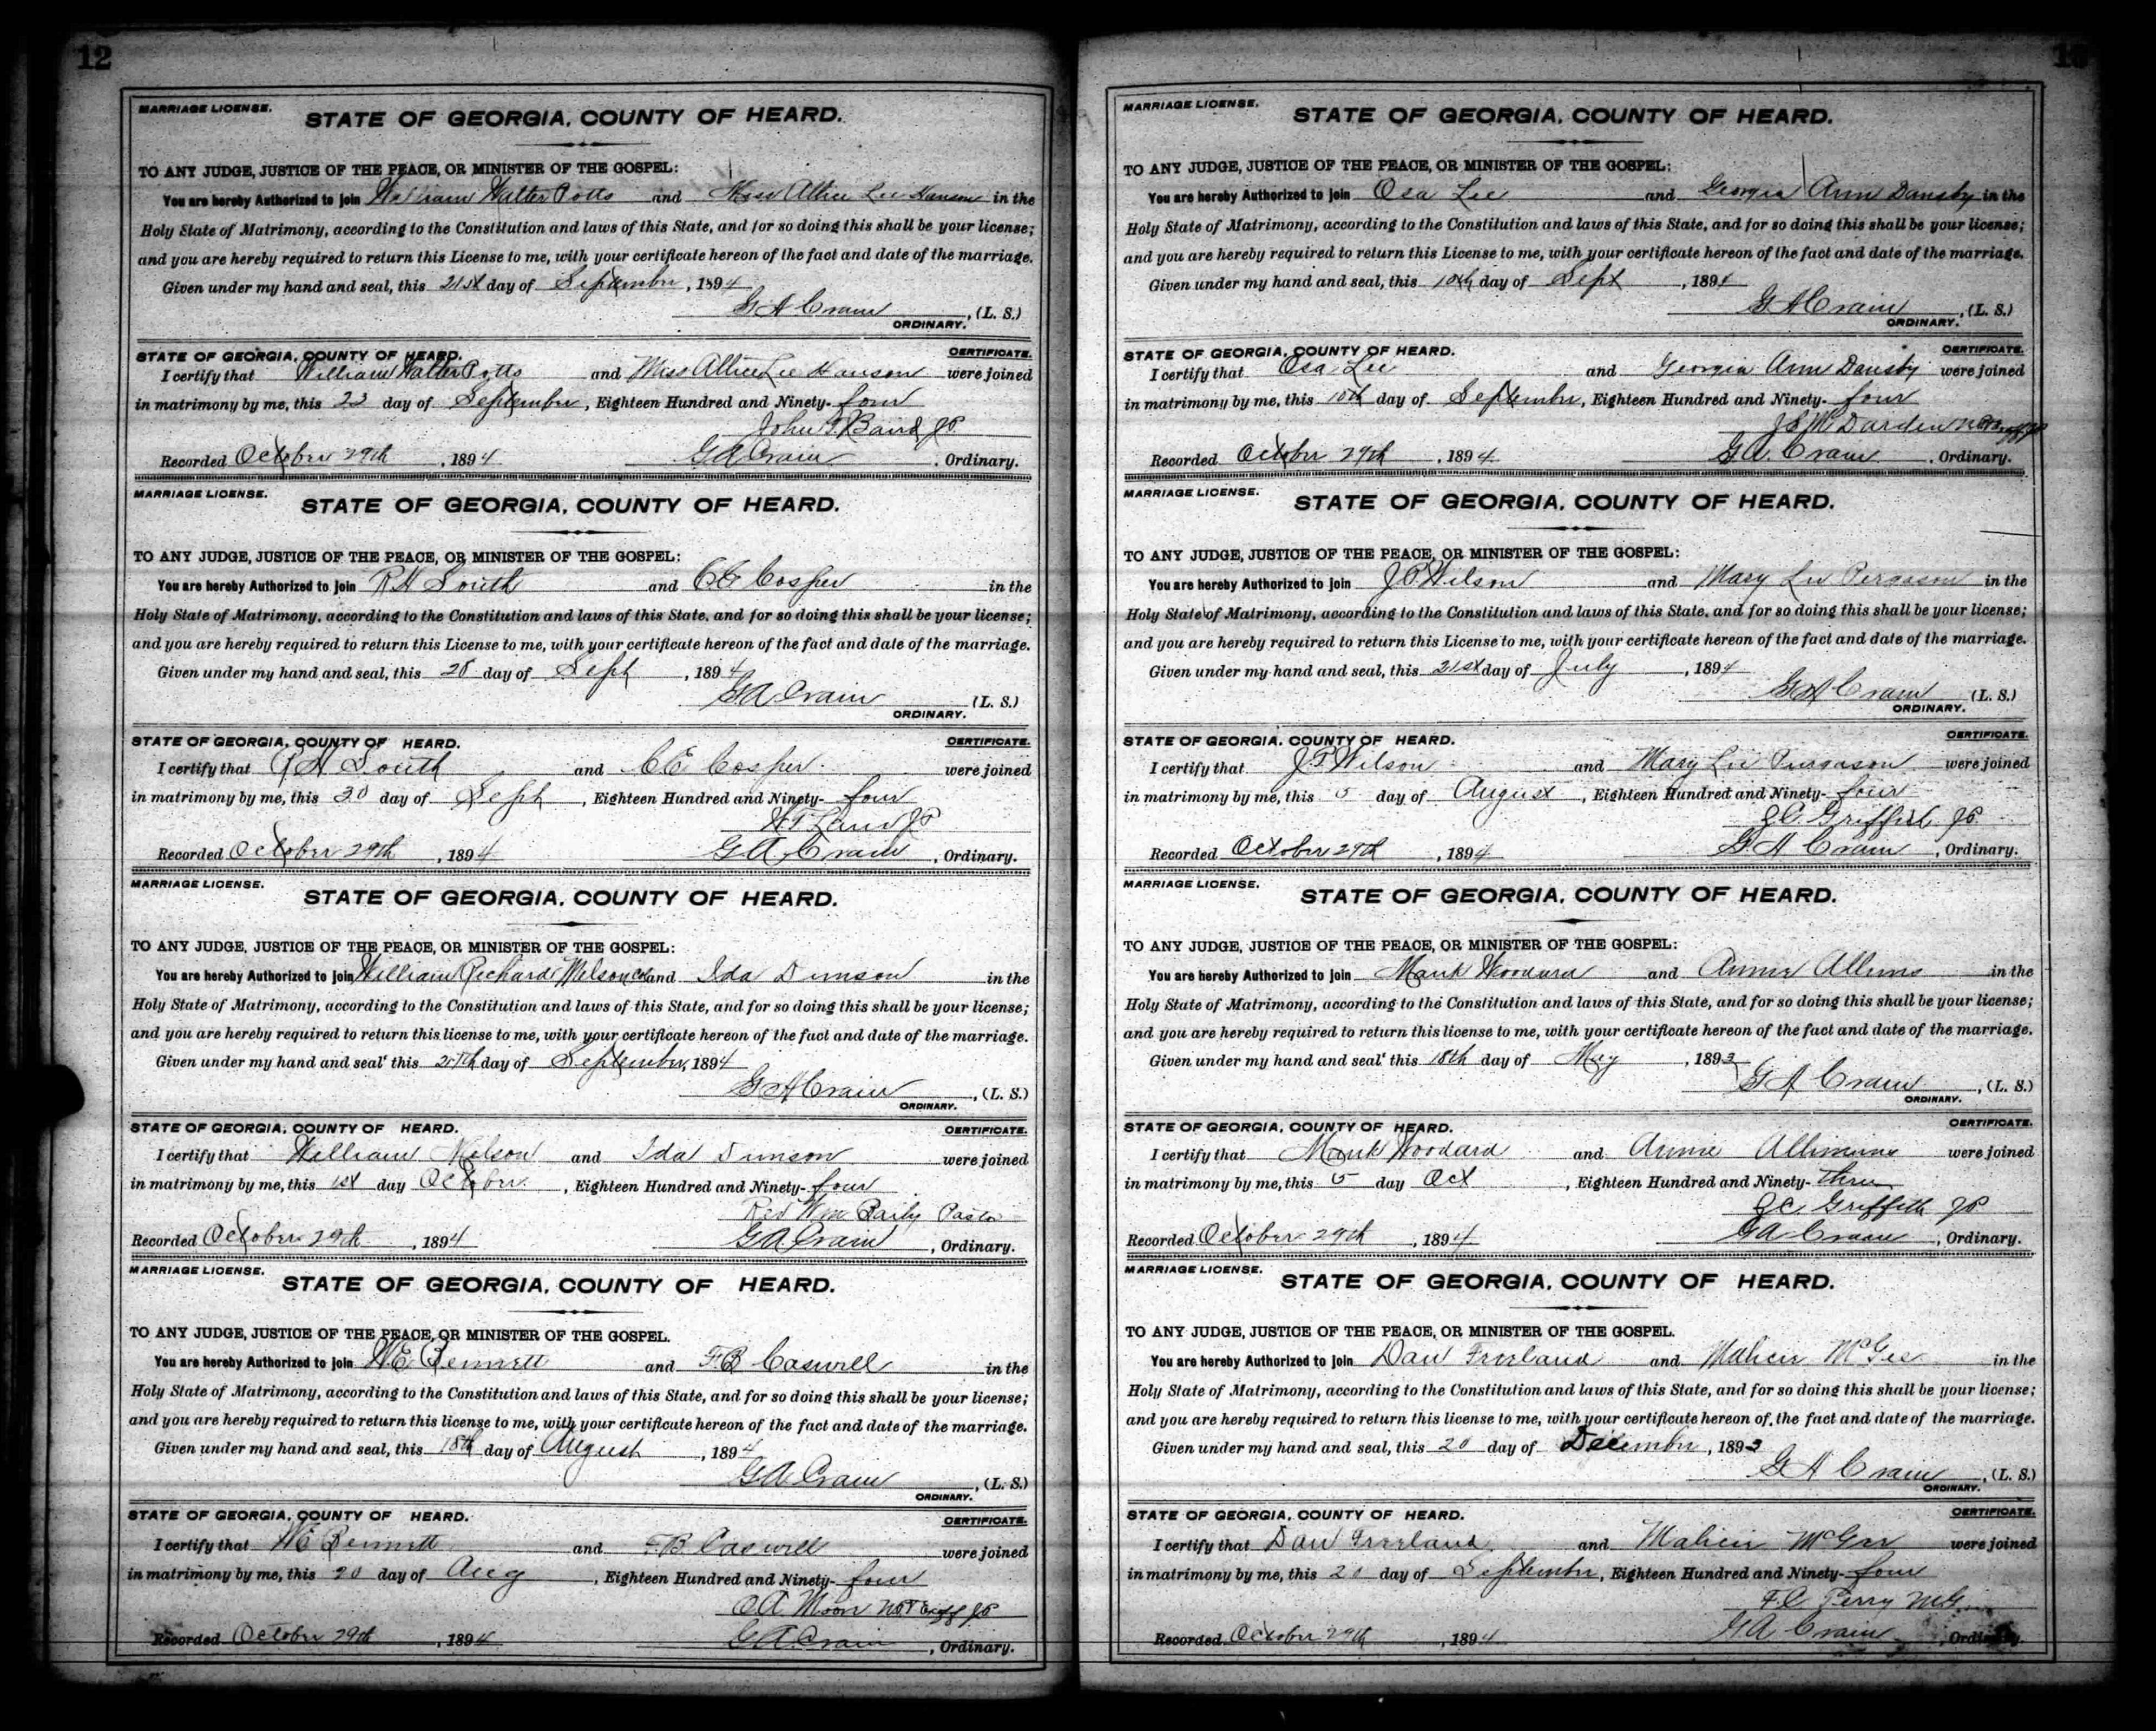 12
MARRIAGE LICENSE.
STATE OF GEORGIA, COUNTY OF HEARD.
TO ANY JUDGE, JUSTICE OF THE PEACE, OR MINISTER OF THE GOSPEL:
You are hereby Authorized to join William Walter Potts and Miss Allice Lee Hanson in the
Holy State of Matrimony, according to the Constitution and laws of this State, and for so doing this shall be your license;
and you are hereby required to return this License to me, with your certificate hereon of the fact and date of the marriage.
Given under my hand and seal, this 21st day of September, 1894
G A Crain, (L. S.)
ORDINARY.
STATE OF GEORGIA, COUNTY OF HEARD. CERTIFICATE.
I certify that William Walter Potts and Miss Allice Lee Hanson were joined
in matrimony by me, this 23 day of September, Eighteen Hundred and Ninety-four
John T. Baird JP
Recorded October 29th, 1894 G A Crain, Ordinary.
MARRIAGE LICENSE.
STATE OF GEORGIA, COUNTY OF HEARD.
TO ANY JUDGE, JUSTICE OF THE PEACE, OR MINISTER OF THE GOSPEL:
You are hereby Authorized to join R H South and C E Cosper in the
Holy State of Matrimony, according to the Constitution and laws of this State, and for so doing this shall be your license;
and you are hereby required to return this License to me, with your certificate hereon of the fact and date of the marriage.
Given under my hand and seal, this 28 day of Sept, 1894
G A Crain (L. S.)
ORDINARY.
STATE OF GEORGIA, COUNTY OF HEARD. CERTIFICATE.
I certify that R H South and C E Cosper were joined
in matrimony by me, this 30 day of Sept, Eighteen Hundred and Ninety-four
JP
Recorded October 29th, 1894 G A Crain, Ordinary.
MARRIAGE LICENSE.
STATE OF GEORGIA, COUNTY OF HEARD.
TO ANY JUDGE, JUSTICE OF THE PEACE, OR MINISTER OF THE GOSPEL:
You are hereby Authorized to join William Richard Melson Col and Ida Dunson in the
Holy State of Matrimony, according to the Constitution and laws of this State, and for so doing this shall be your license;
and you are hereby required to return this license to me, with your certificate hereon of the fact and date of the marriage.
Given under my hand and seal this day of September, 1894
G A Crain, (L. S.)
ORDINARY.
STATE OF GEORGIA, COUNTY OF HEARD. CERTIFICATE.
I certify that William Melson and Ida Dunson were joined
in matrimony by me, this 1st day October, Eighteen Hundred and Ninety-four
Rev Wm Baily Pastor
Recorded October 29th, 1894 G A Crain, Ordinary.
MARRIAGE LICENSE.
STATE OF GEORGIA, COUNTY OF HEARD.
TO ANY JUDGE, JUSTICE OF THE PEACE, OR MINISTER OF THE GOSPEL.
You are hereby Authorized to join W E Bennett and F B Caswell in the
Holy State of Matrimony, according to the Constitution and laws of this State, and for so doing this shall be your license;
and you are hereby required to return this license to me, with your certificate hereon of the fact and date of the marriage.
Given under my hand and seal, this 18th day of August, 1894
G A Crain, (L. S.)
ORDINARY.
STATE OF GEORGIA, COUNTY OF HEARD. CERTIFICATE.
I certify that W E Bennett and F B Caswell were joined
in matrimony by me, this 20 day of Aug, Eighteen Hundred and Ninety-four
O A Moon JP
Recorded October 29th, 1894 G A Crain, Ordinary.
MARRIAGE LICENSE.
STATE OF GEORGIA, COUNTY OF HEARD.
TO ANY JUDGE, JUSTICE OF THE PEACE, OR MINISTER OF THE GOSPEL:
You are hereby Authorized to join Osa Lee and Georgia Ann Dansby in the
Holy State of Matrimony, according to the Constitution and laws of this State, and for so doing this shall be your license;
and you are hereby required to return this License to me, with your certificate hereon of the fact and date of the marriage.
Given under my hand and seal, this 10th day of Sept, 1894
G A Crain, (L. S.)
ORDINARY.
STATE OF GEORGIA, COUNTY OF HEARD. CERTIFICATE.
I certify that Osa Lee and Georgia Ann Dansby were joined
in matrimony by me, this 10th day of September, Eighteen Hundred and Ninety-four
Darden
Recorded October 29th, 1894 G A. Crain, Ordinary.
MARRIAGE LICENSE.
STATE OF GEORGIA, COUNTY OF HEARD.
TO ANY JUDGE, JUSTICE OF THE PEACE, OR MINISTER OF THE GOSPEL:
You are hereby Authorized to join J P Wilson and Mary Lee Pergason in the
Holy State of Matrimony, according to the Constitution and laws of this State, and for so doing this shall be your license;
and you are hereby required to return this License to me, with your certificate hereon of the fact and date of the marriage.
Given under my hand and seal, this 21st day of July, 1894
G A Crain (L. S.)
ORDINARY.
STATE OF GEORGIA, COUNTY OF HEARD. CERTIFICATE.
I certify that J P Wilson and Mary Lee Purgason were joined
in matrimony by me, this 5 day of August, Eighteen Hundred and Ninety-four
J C Griffith JP
Recorded October 29th, 1894 G A Crain, Ordinary.
MARRIAGE LICENSE.
STATE OF GEORGIA, COUNTY OF HEARD.
TO ANY JUDGE, JUSTICE OF THE PEACE, OR MINISTER OF THE GOSPEL:
You are hereby Authorized to join Mank Woodard and Annie in the
Holy State of Matrimony, according to the Constitution and laws of this State, and for so doing this shall be your license;
and you are hereby required to return this license to me, with your certificate hereon of the fact and date of the marriage.
Given under my hand and seal this 18th day of May, 1893
G A Crain, (L. S.)
ORDINARY.
STATE OF GEORGIA, COUNTY OF HEARD. CERTIFICATE.
I certify that Mank Woodard and Annie were joined
in matrimony by me, this 5 day Oct, Eighteen Hundred and Ninety-three
J C Griffith JP
Recorded October 29th, 1894 G A Crain, Ordinary.
MARRIAGE LICENSE.
STATE OF GEORGIA, COUNTY OF HEARD.
TO ANY JUDGE, JUSTICE OF THE PEACE, OR MINISTER OF THE GOSPEL.
You are hereby Authorized to join Dan and McGee in the
Holy State of Matrimony, according to the Constitution and laws of this State, and for so doing this shall be your license;
and you are hereby required to return this license to me, with your certificate hereon of the fact and date of the marriage.
Given under my hand and seal, this 20 day of December, 1893
G A Crain, (L. S.)
ORDINARY.
STATE OF GEORGIA, COUNTY OF HEARD. CERTIFICATE.
I certify that Dan and McGee were joined
in matrimony by me, this day of September, Eighteen Hundred and Ninety-four
F. C. Perry M.G.
Recorded October 29th, 1894 G A Crain, Ordinary.